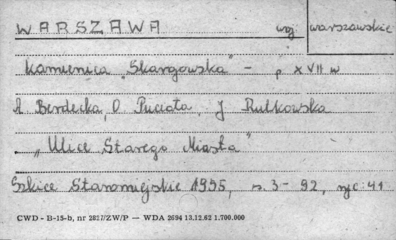 WARSZAWA woj. warszawskie
Kamienica „Skargowska” - p XVII w
A Berdecka, D Puciata, J Rutkowska
„Ulice Starego Miasta”
Szkice Staromiejskie 1955, s. 3-92, ryc: 41
CWD - B-15-b, nr 2827/ZW/P — WDA 2694 13.12.62 1.700.000